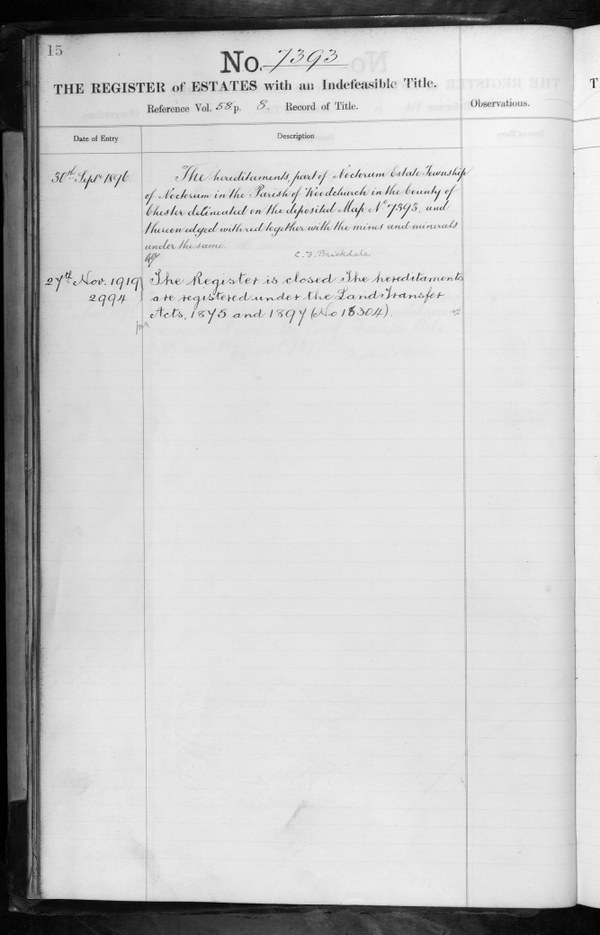 15
No. 7393
THE REGISTER of ESTATES with an Indefeasible Title.
Reference Vol. 58 p. 8. Record of Title.
Observations.
Date of Entry
Description
30th Septr 1896
The hereditaments, part of Noctorum Estate Township
of Noctorum in the Parish of Woodchurch in the County of
Chester delineated on the deposited Map No 7393, and
thereon edged with red together with the mines and minerals
under the same.
C. F. Brickdale
27th Nov. 1919
2994
The Register is closed The hereditaments
are registered under the Land Transfer
Acts, 1875 and 1897 (No 18304).